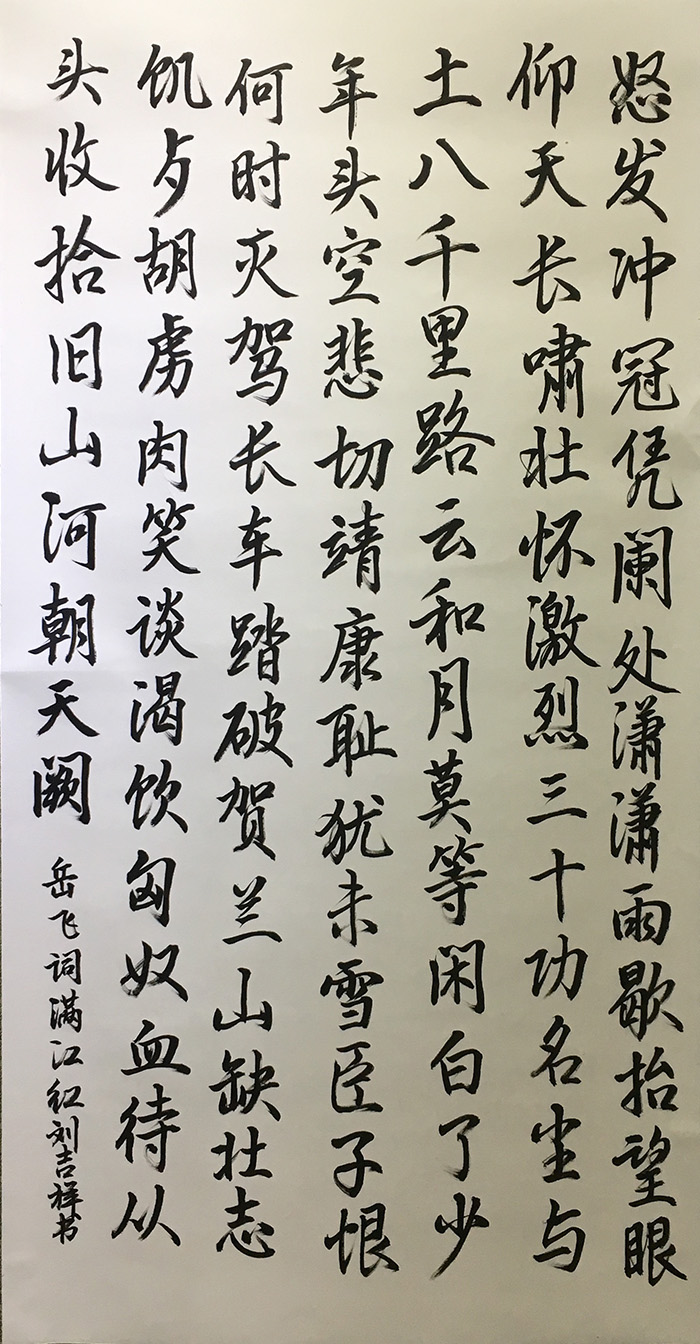 怒发冲冠凭阑处潇潇雨歇抬望眼
仰天长啸壮怀激烈三十功名尘与
土八千里路云和月莫等闲白了少
年头空悲切靖康耻犹未雪臣子恨
何时灭驾长车踏破贺兰山缺壮志
饥歺胡虏肉笑谈渴饮匈奴血待从
头收拾旧山河朝天阙
岳飞词满江红刘吉祥书